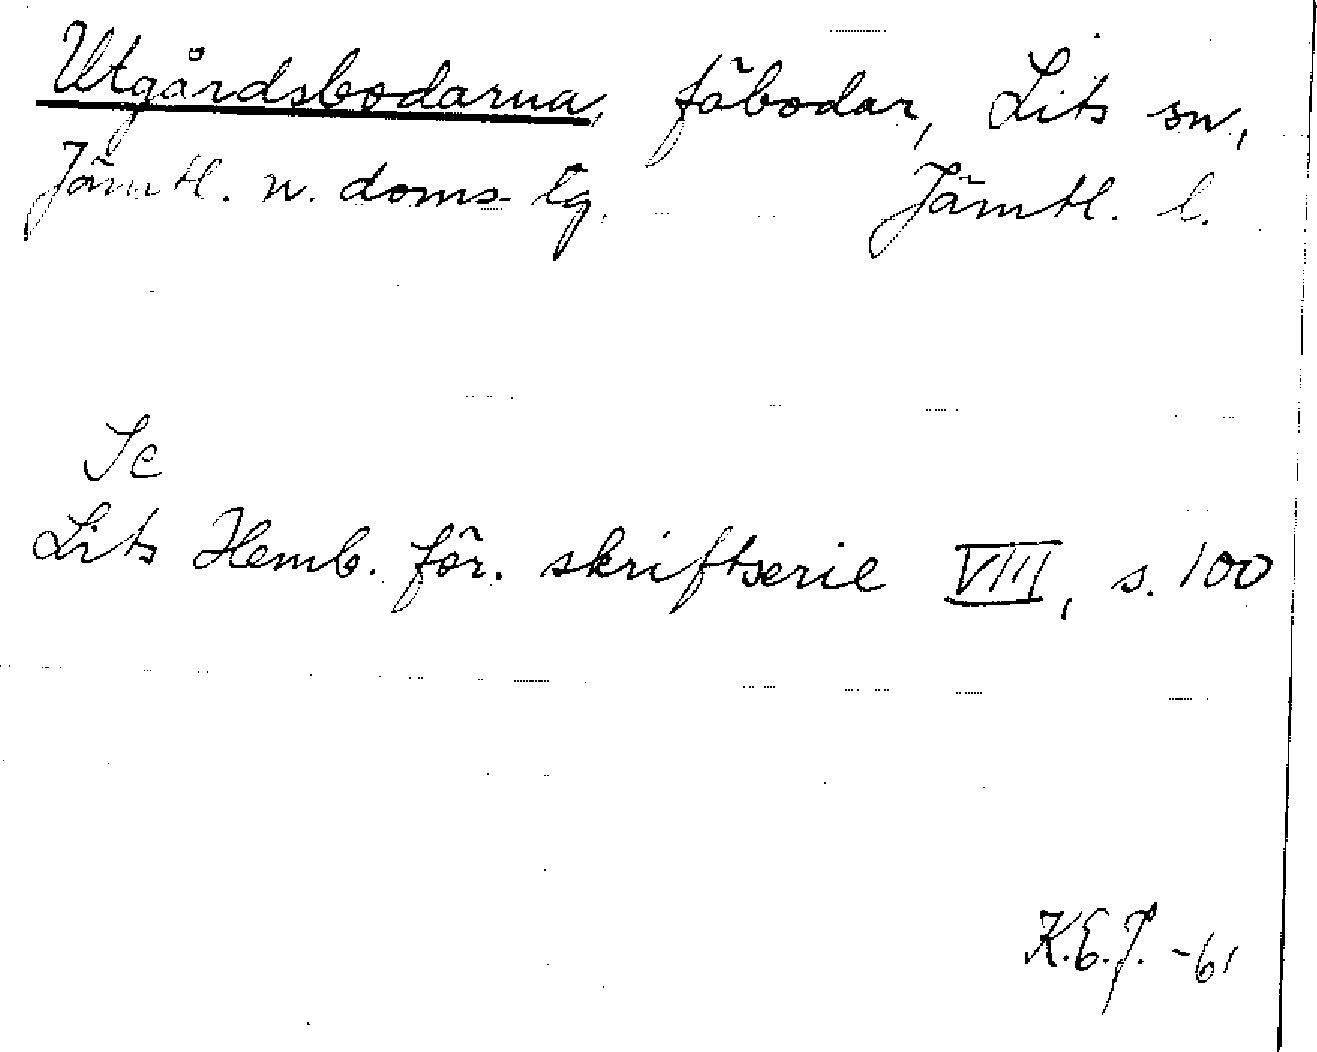 Utgårdsbodarna, fäbodar, Lits sn,
Jämtl. n. doms. tg. Jämtl. l.
Se
Lits Hemb. för. skriftserie VIII, s. 100
K.E.J. -61